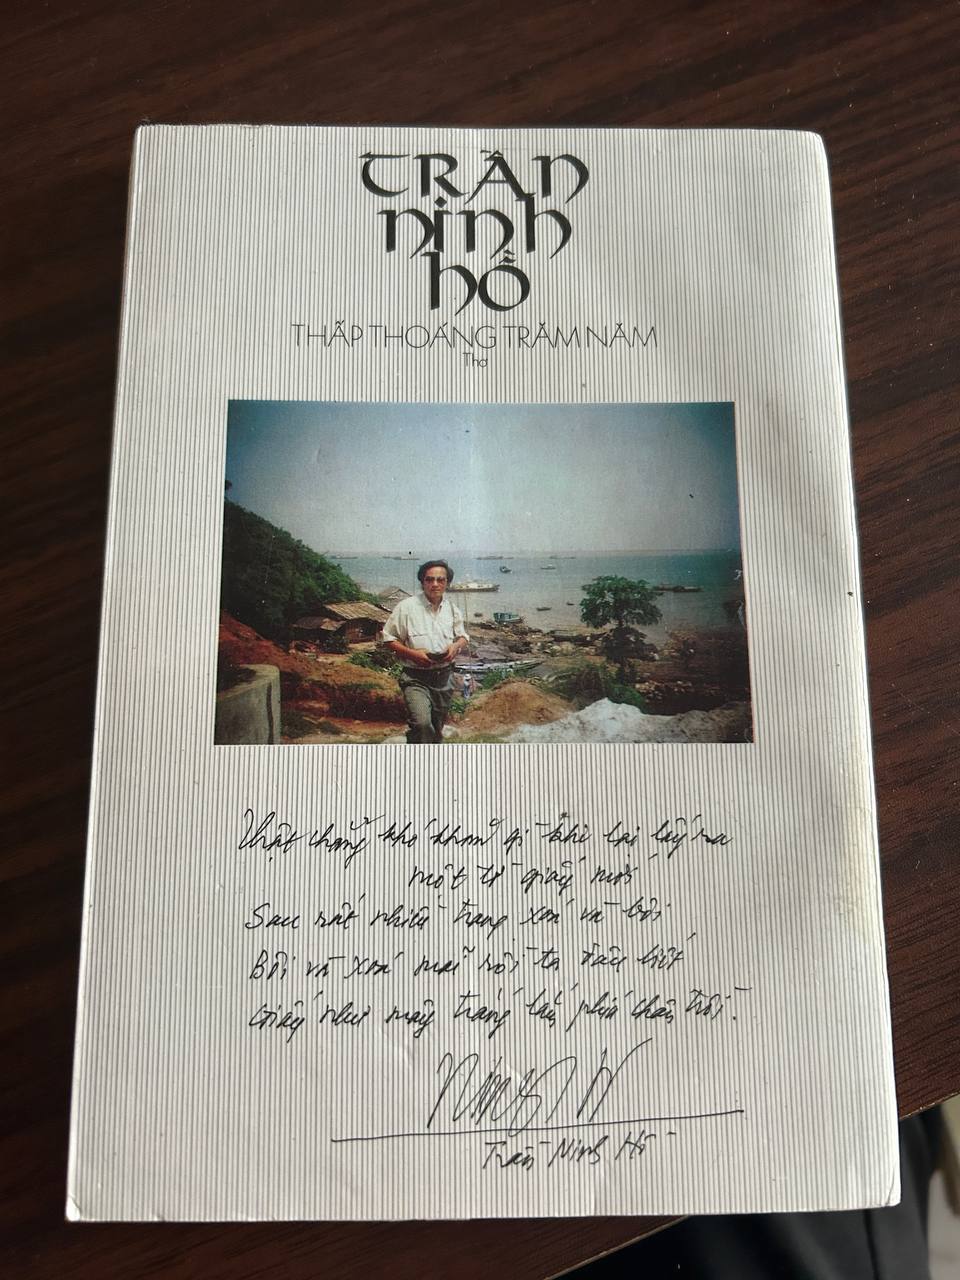 TRẦN
NINH
HỒ
THẤP THOÁNG TRĂM NĂM
Thơ
Thật chẳng khó khăn gì khi lại lấy ra
một tờ giấy mới
Sau rất nhiều trang xoá và bôi
Bôi và xoá mãi rồi ta đâu biết
Giấy như mây trắng lấp phía chân trời.
Trần Ninh Hồ